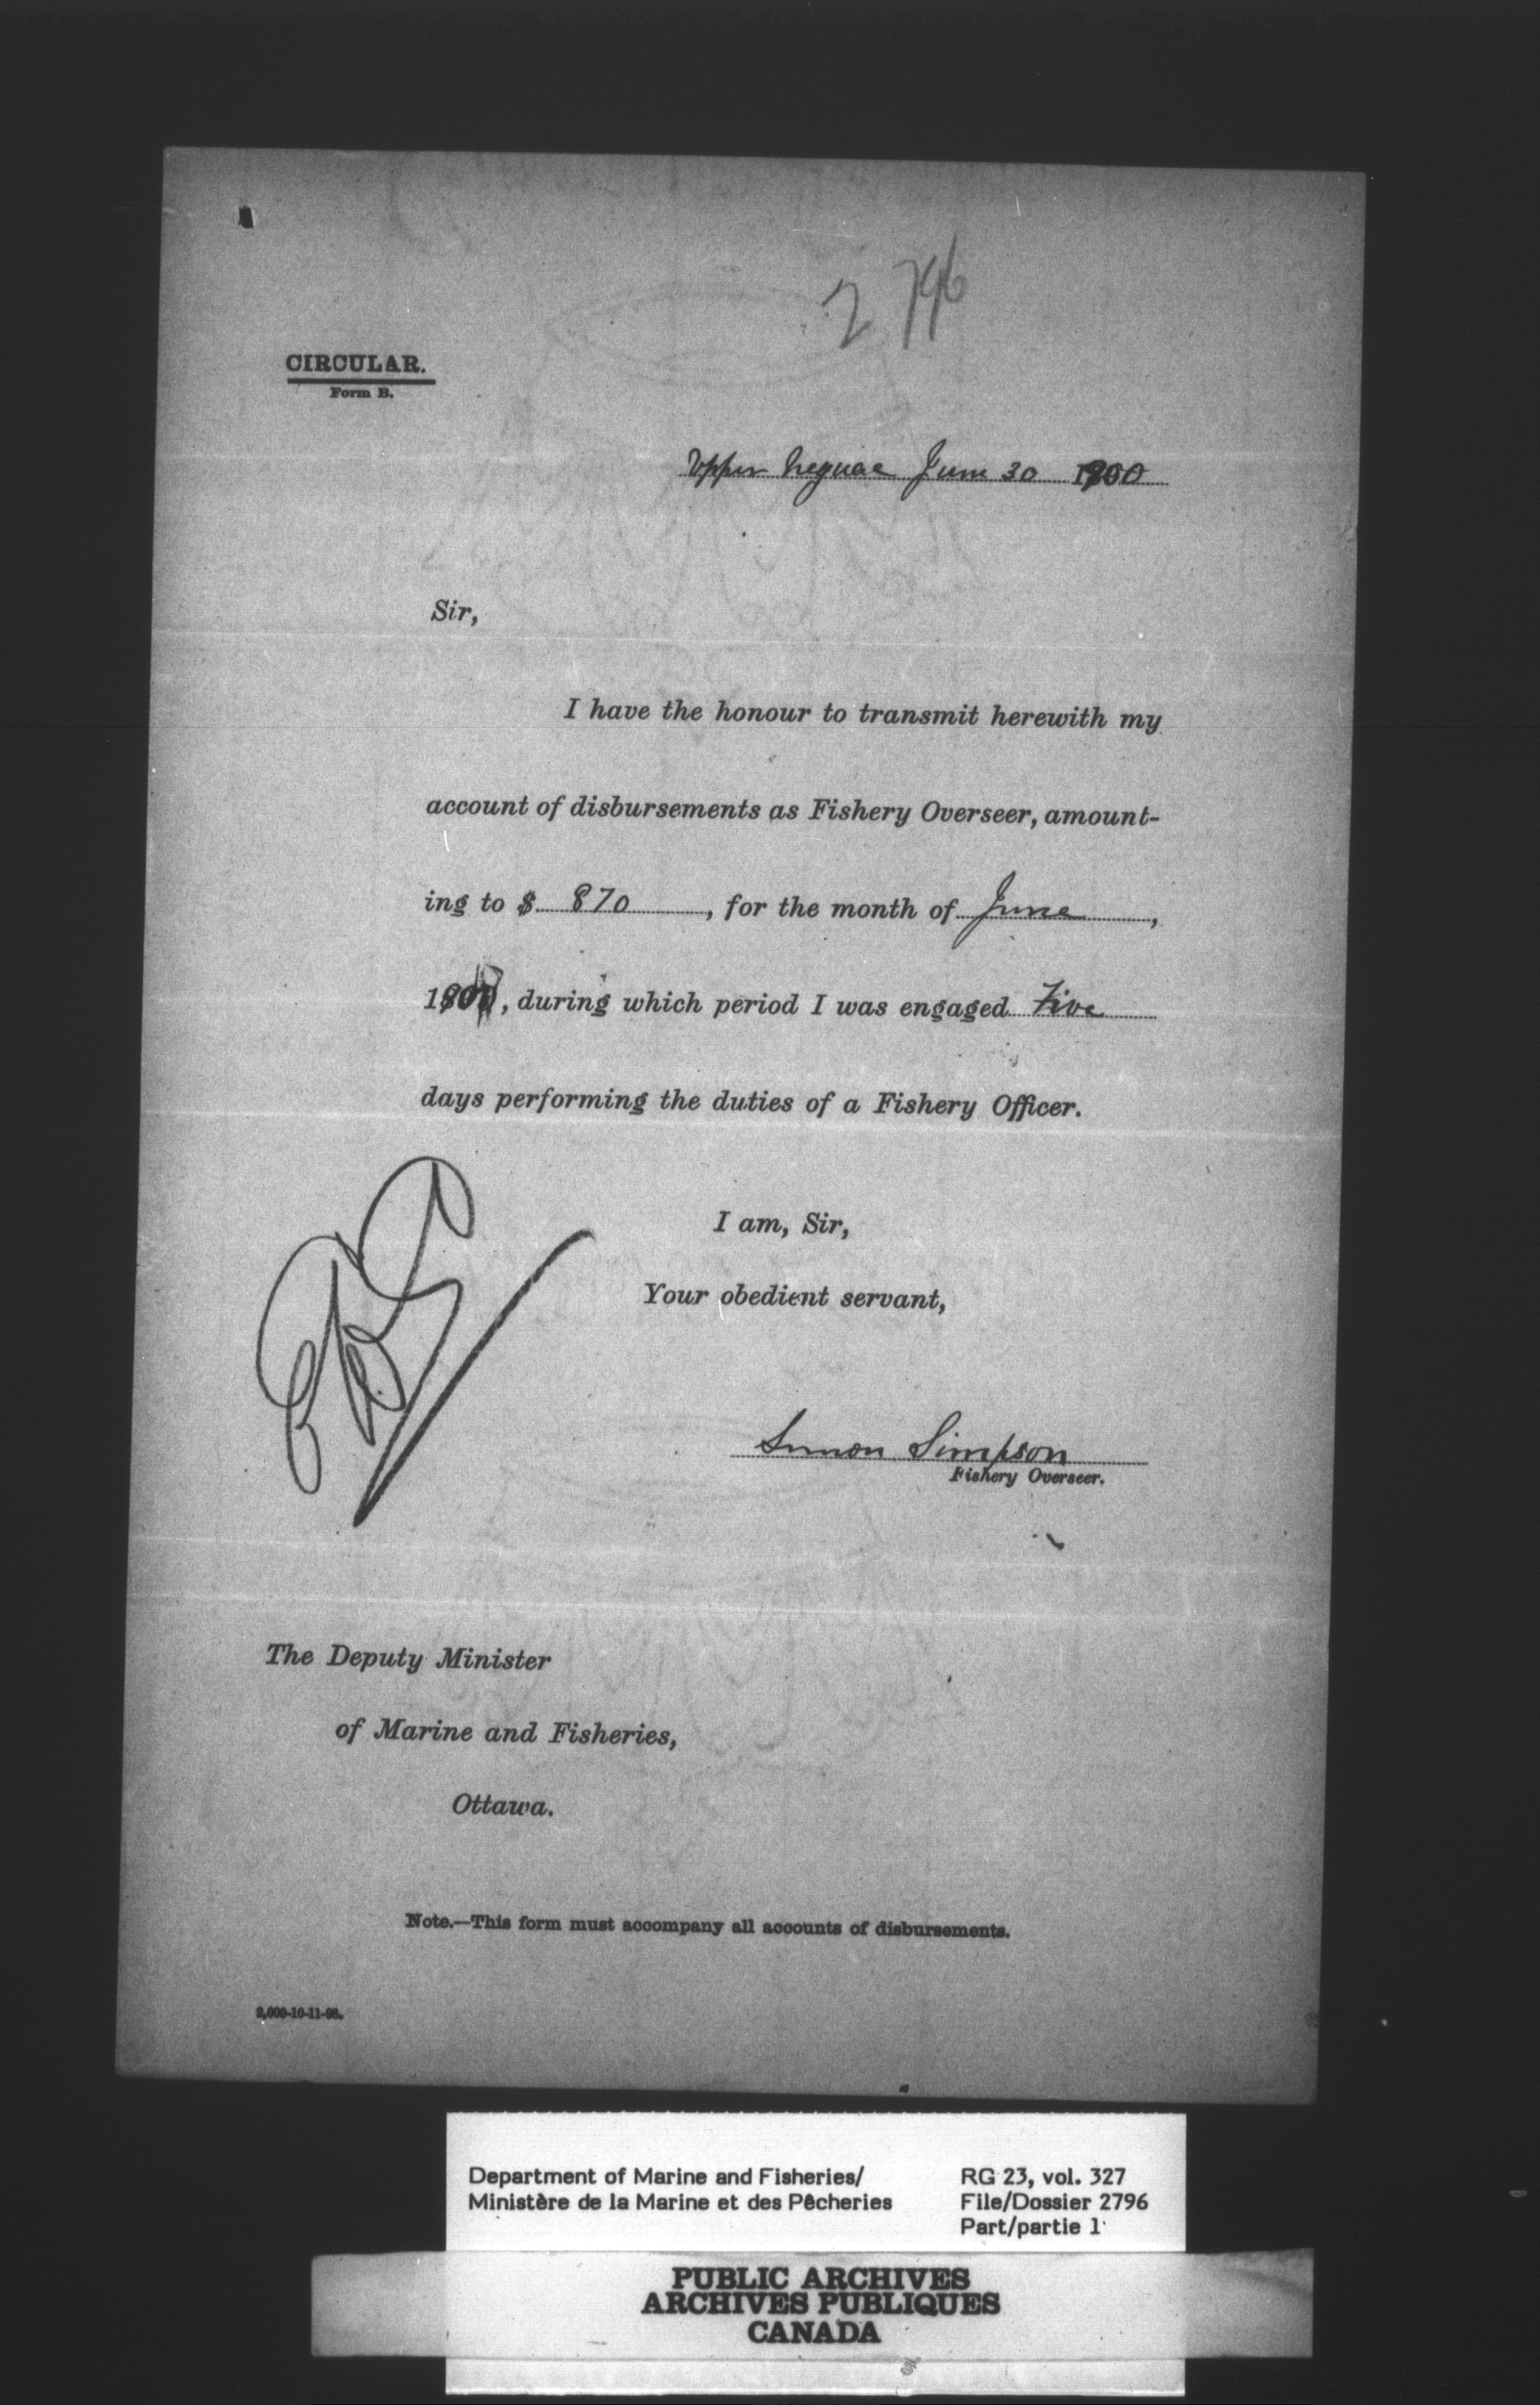 2 796
CIRCULAR.
Form B.
Upper Neguac June 30 1900
Sir,
I have the honour to transmit herewith my
account of disbursements as Fishery Overseer, amount-
ing to $ 870, for the month of June,
1900, during which period I was engaged Five
days performing the duties of a Fishery Officer.
I am, Sir,
Your obedient servant,
Simon Simpson
Fishery Overseer.
The Deputy Minister
of Marine and Fisheries,
Ottawa.
Note.—This form must accompany all accounts of disbursements.
2,000-10-11-98.
Department of Marine and Fisheries/
Ministère de la Marine et des Pêcheries
RG 23, vol. 327
File/Dossier 2796
Part/partie 1
PUBLIC ARCHIVES
ARCHIVES PUBLIQUES
CANADA